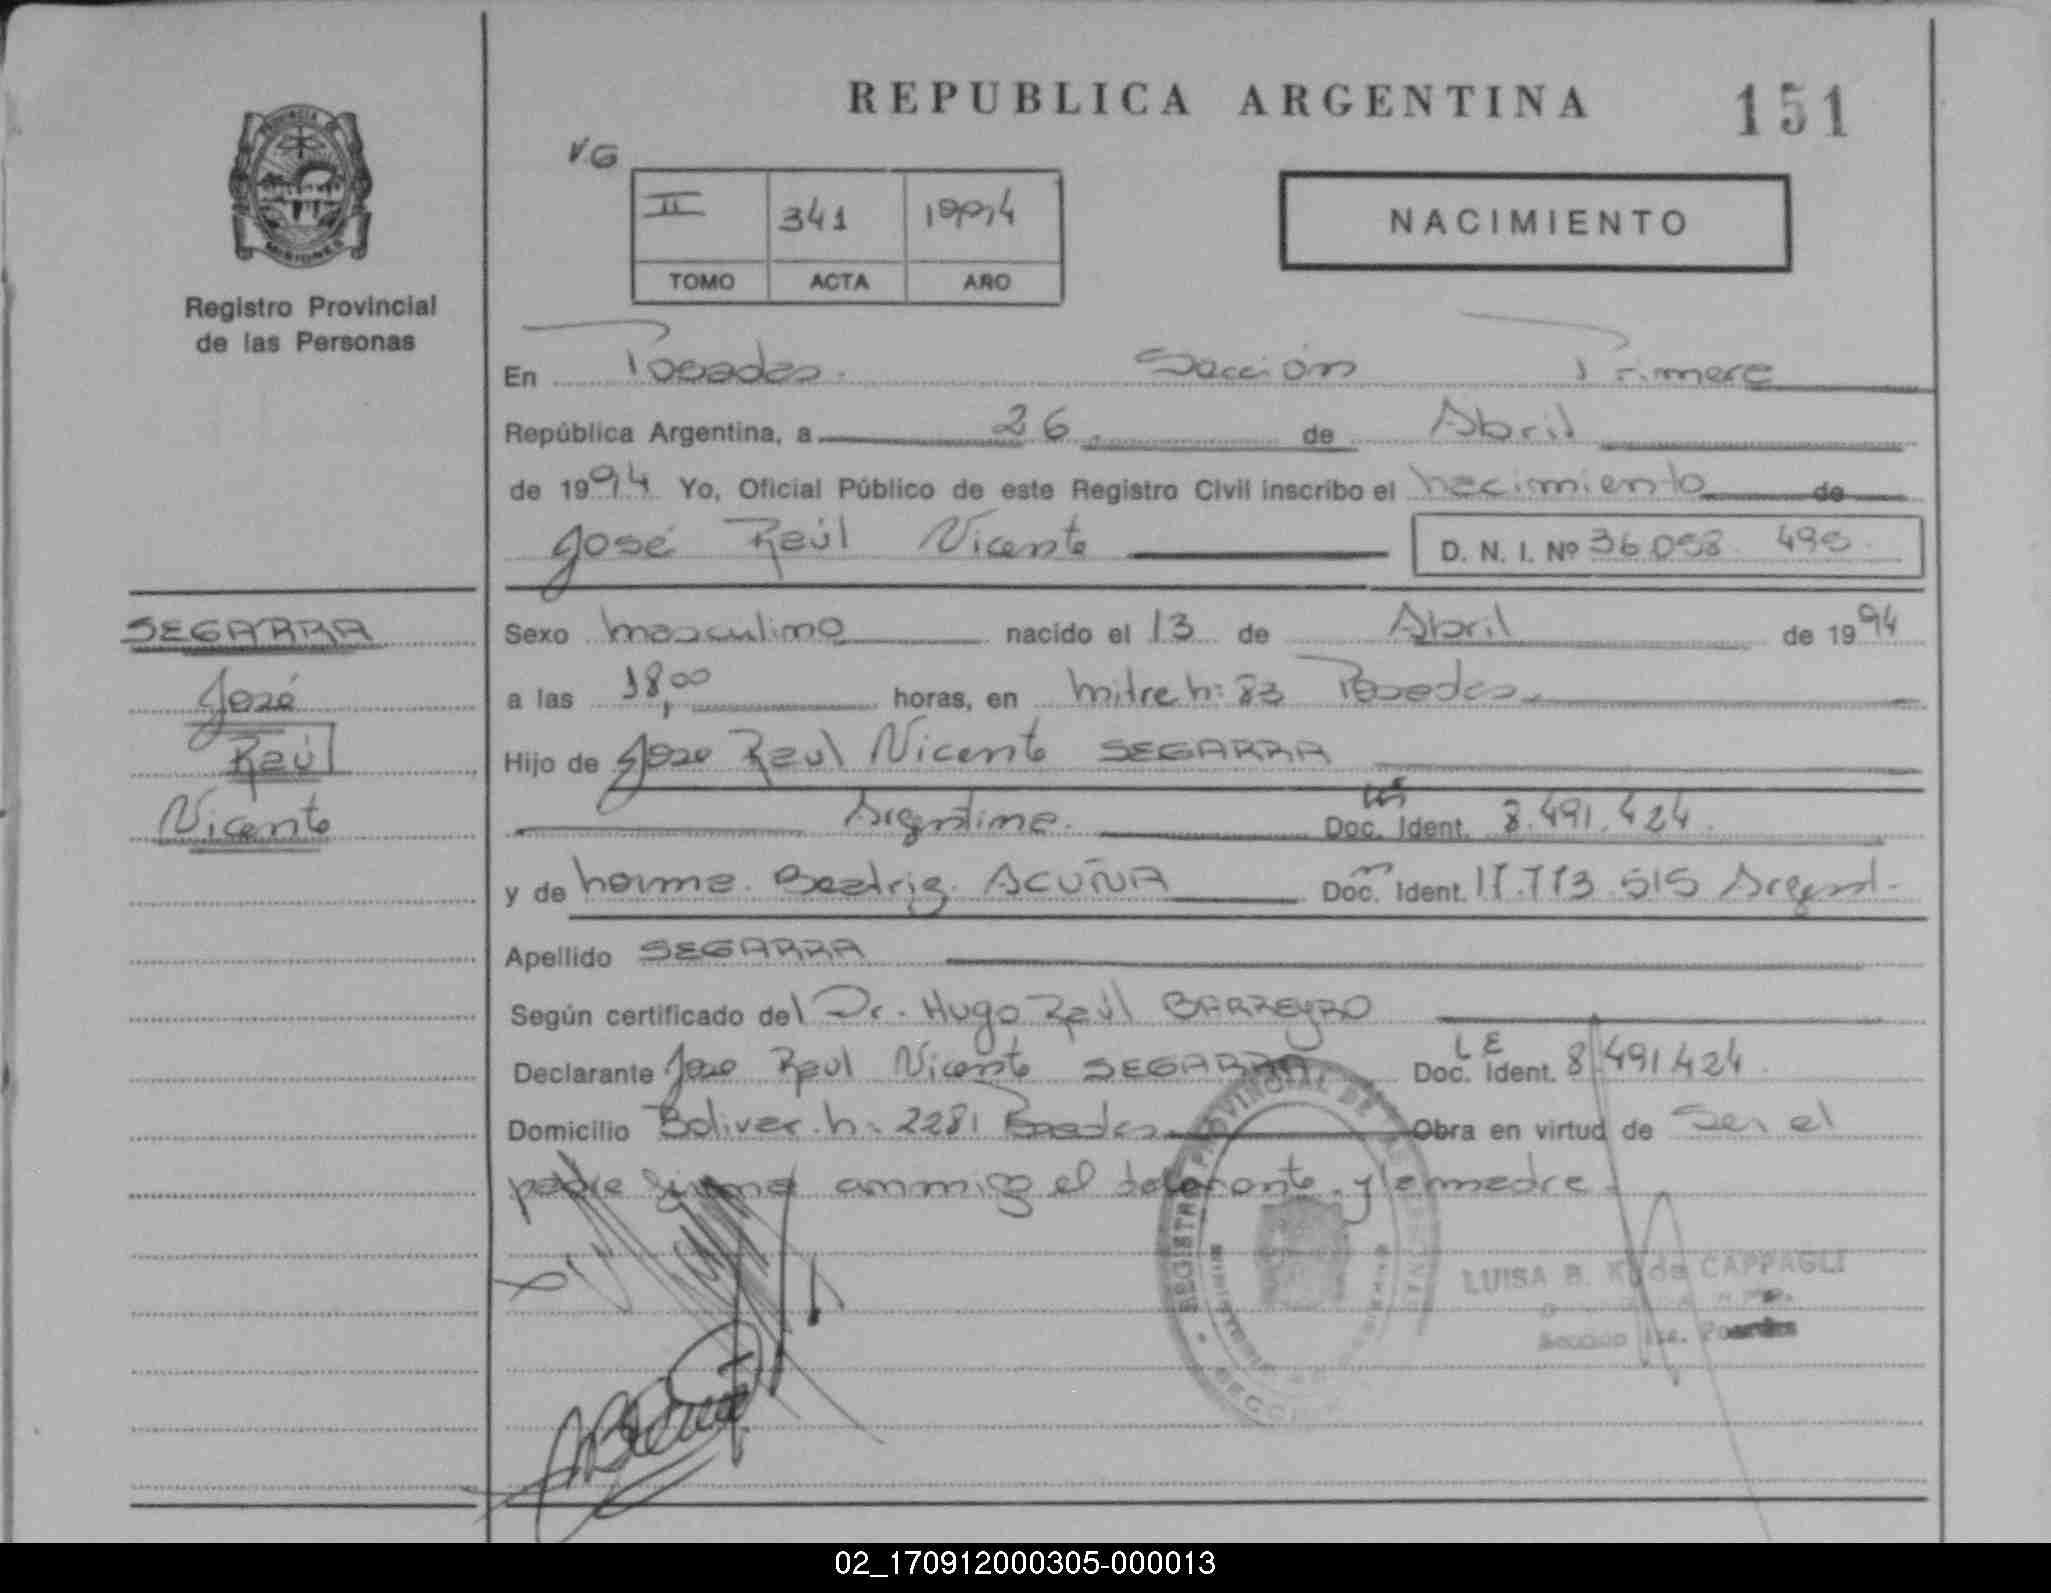 REPUBLICA ARGENTINA
151
PROVINCIA DE
MISIONES
Registro Provincial
de las Personas
VG
II 341 1994
TOMO ACTA AÑO
NACIMIENTO
En Posadas. Sección Primera
República Argentina, a 26 de Abril
de 1994 Yo, Oficial Público de este Registro Civil inscribo el nacimiento de
José Raúl Vicente D. N. I. Nº
SEGARRA
José
Raúl
Vicente
Sexo masculino nacido el 13 de Abril de 1994
a las 18,00 horas, en Mitre n: 83 Posadas
Hijo de Jose Raul Vicente SEGARRA
Argentina. Doc. Ident. 8.491.424.
y de Norma Beatriz ACUÑA Doc. Ident. Argent.
Apellido SEGARRA
Según certificado del Dr. Hugo Raúl BARREYRO
Declarante Jose Raul Vicente SEGARRA LE Doc. Ident. 8.491.424.
Domicilio Bolivar n: 2281 Posadas Obra en virtud de Ser el
padre firma conmigo el declarante y la madre.
REGISTRO PROVINCIAL DE
LUISA B. K. de CAPPAGLI
02_170912000305-000013